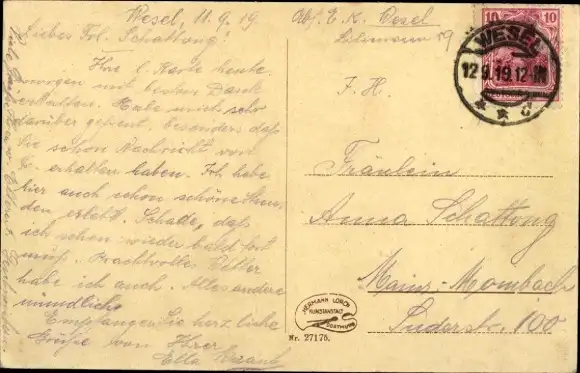 Wesel, 11.9.19.
Liebes Frl. Schattong!
Ihre l. Karte heute
morgen mit bestem Dank
erhalten. Habe mich sehr
darüber gefreut, besonders daß
Sie schon Nachricht von
E. erhalten haben. Ich habe
hier auch schon schöne Stun-
den erlebt. Schade, daß
ich schon wieder bald fort
muß. Prachtvolles Wetter
habe ich auch. Alles andere
mündlich.
Empfangen Sie herzliche
Grüße von Ihrer
Ella
Abs. E. K. Wesel
19
F. H.
Fräulein
Anna Schattong
Mainz-Mombach
Suderstr. 100
10 10
WESEL
12.9.19.12-1N
* * d
HERMANN LORCH
KUNSTANSTALT
DORTMUND
Nr. 27175.